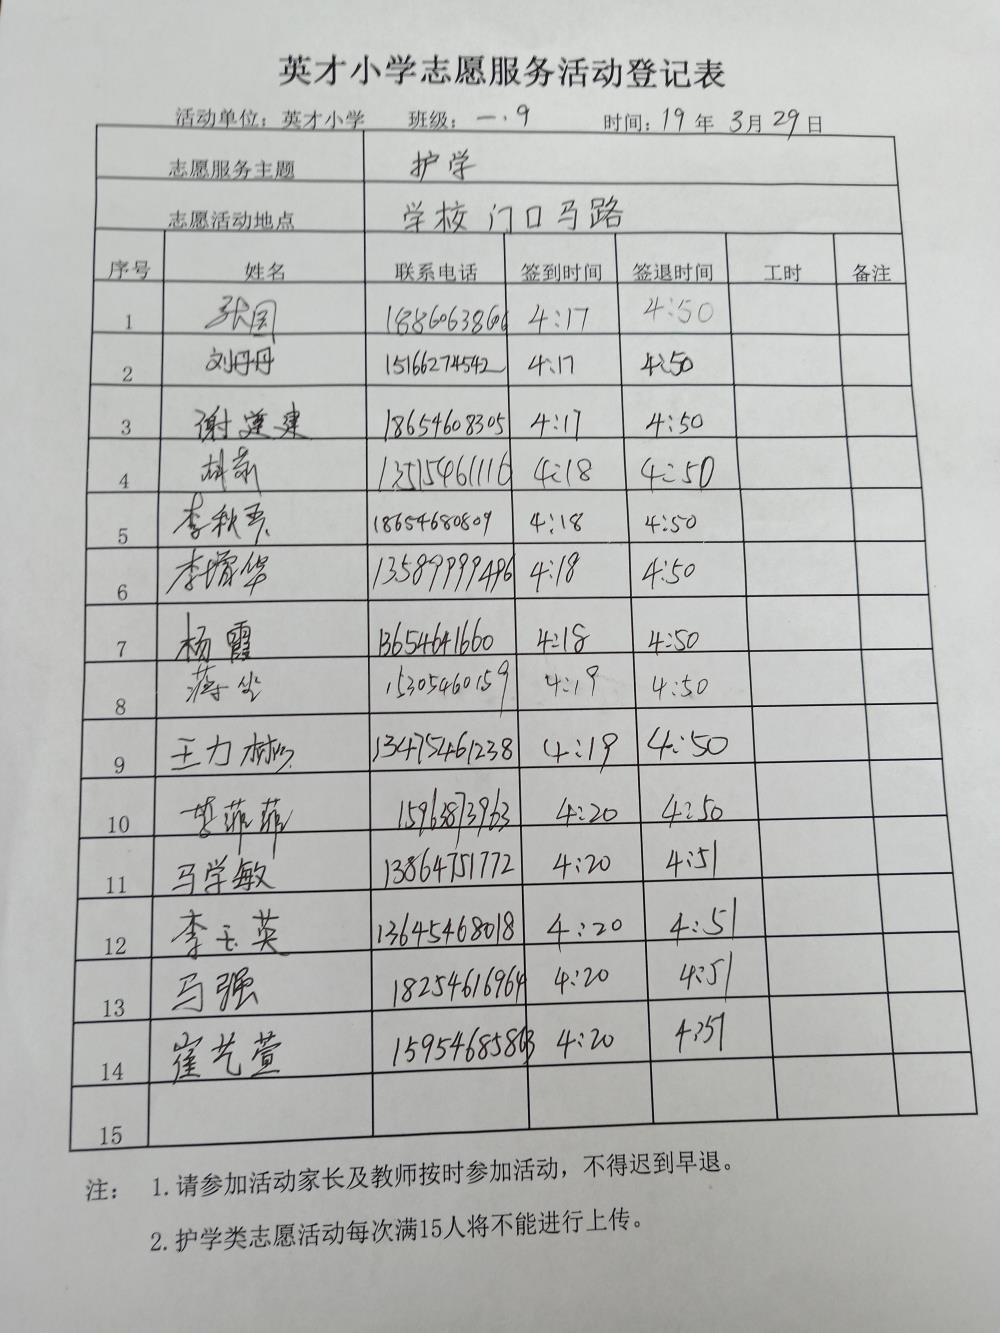 英才小学志愿服务活动登记表
活动单位：英才小学 班级：一.9 时间：19年 3月29日
志愿服务主题 护学
志愿活动地点 学校门口马路
序号 姓名 联系电话 签到时间 签退时间 工时 备注
1 张国 18860638606 4:17 4:50
2 刘丹丹 15166274542 4:17 4:50
3 谢建建 18654608305 4:17 4:50
4 13515461116 4:18 4:50
5 李秋 18654680809 4:18 4:50
6 李增华 13589999496 4:18 4:50
7 杨霞 13654641660 4:18 4:50
8 蒋 15305460159 4:19 4:50
9 王力 13475461238 4:19 4:50
10 菲菲 15963873963 4:20 4:50
11 马学敏 13864751772 4:20 4:51
12 李玉英 13645468018 4:20 4:51
13 马强 18254616964 4:20 4:51
14 崔艺萱 15954685803 4:20 4:51
15
注： 1.请参加活动家长及教师按时参加活动，不得迟到早退。
2.护学类志愿活动每次满15人将不能进行上传。